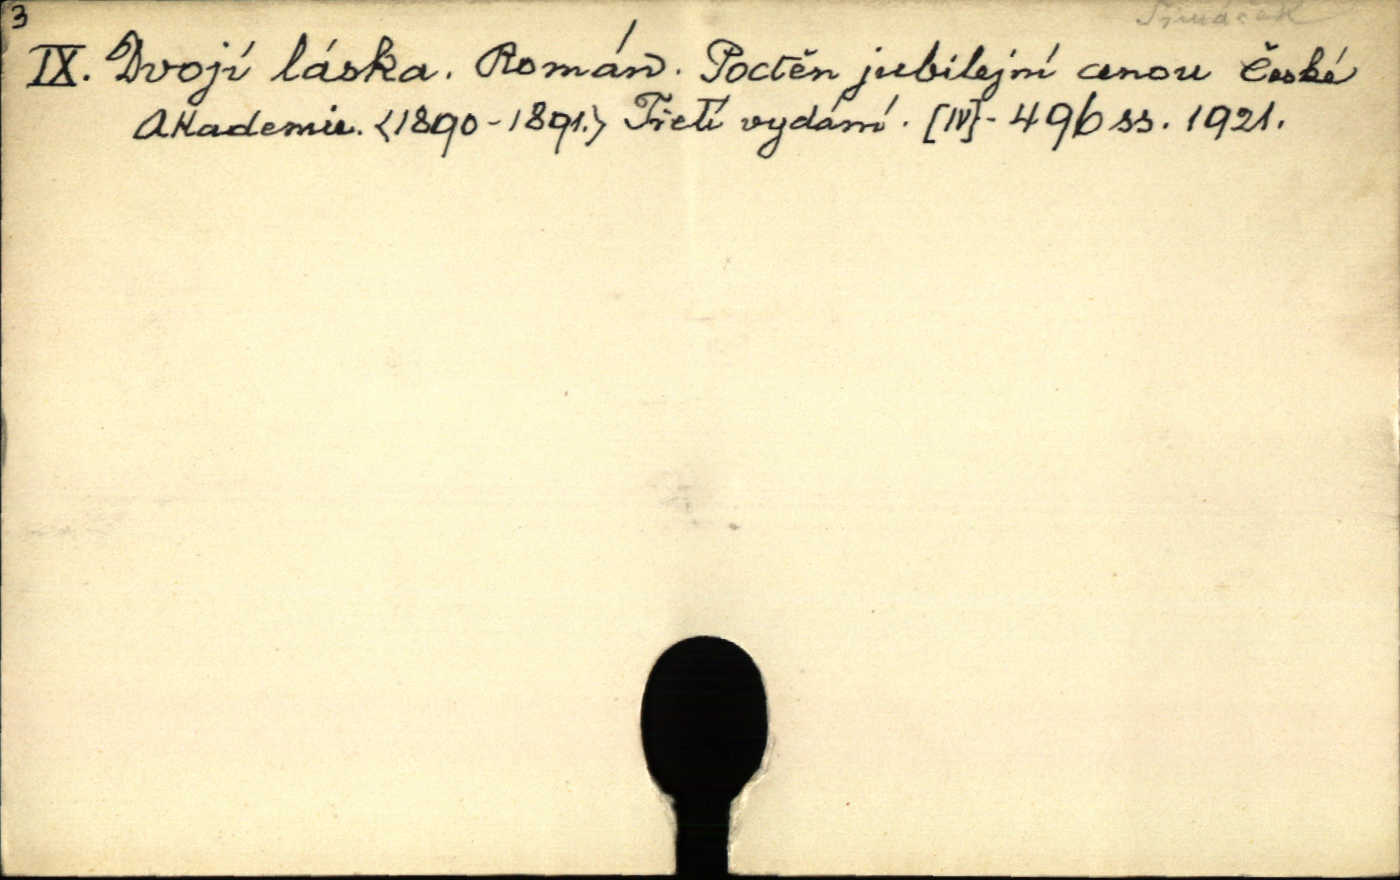 3
Šimáček
IX. Dvojí láska. Román. Poctěn jubilejní cenou České
Akademie. <1890-1891.> Třetí vydání. [IV]- 496 ss. 1921.